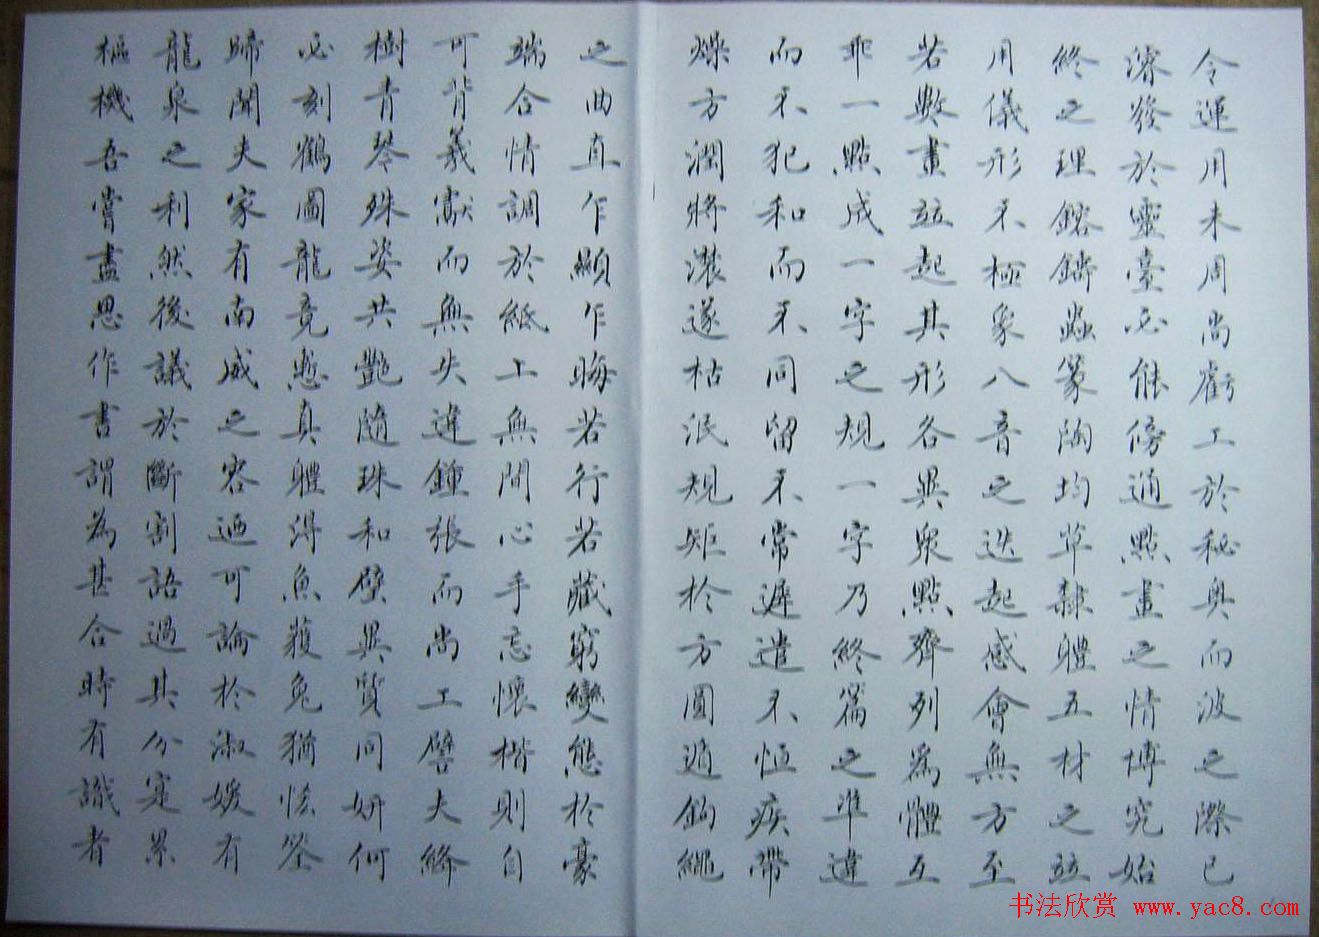 令運用未周尚虧工於秘奧而波之際已
濬發於靈臺必能傍通點畫之情博究始
終之理鎔鑄蟲篆陶均草隸體五材之並
用儀形不極象八音之迭起感會無方至
若數畫並起其形各異眾點齊列為體互
乖一點成一字之規一字乃終篇之準違
而不犯和而不同留不常遲遣不恒疾帶
燥方潤將濃遂枯泯規矩於方圓遁鉤繩
之曲直乍顯乍晦若行若藏窮變態於豪
端合情調於紙上無間心手忘懷楷則自
可背羲獻而無失違鍾張而尚工譬夫絳
樹青琴殊姿共艷隨珠和璧異質同妍何
必刻鶴圖龍竟慙真體得魚獲兔猶恡筌
蹄聞夫家有南威之容迺可論於淑媛有
龍泉之利然後議於斷割語過其分寔累
樞機吾嘗盡思作書謂為甚合時有識者
书法欣赏 www.yac8.com